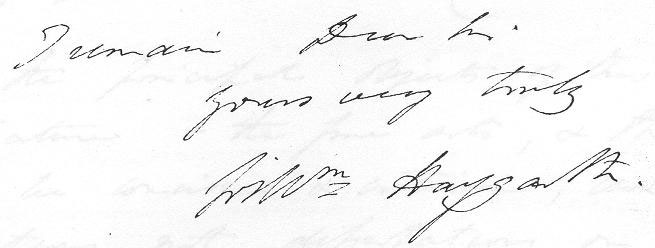 I remain Dear Sir
yours very truly
Wm Haygarth.